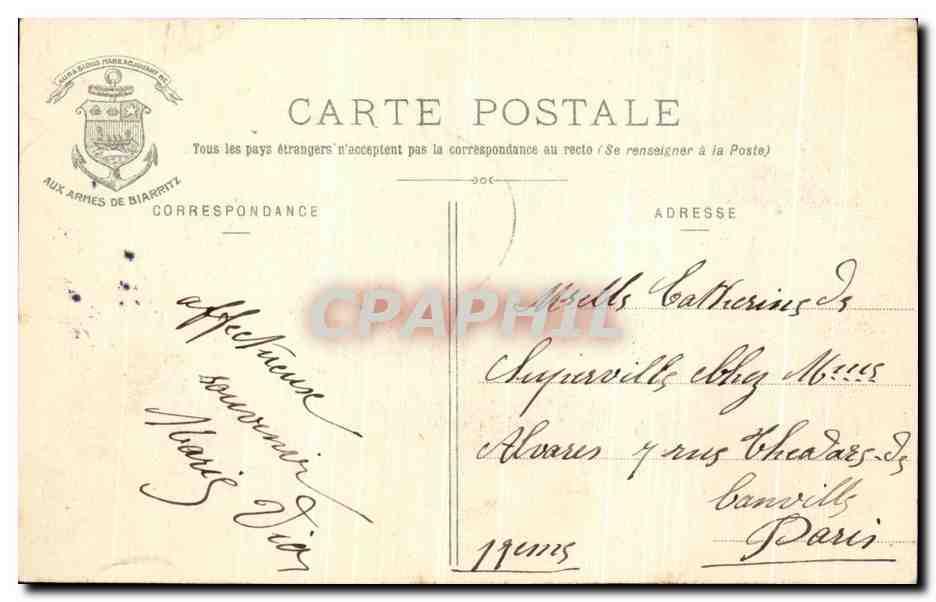 AURA SIDUS MARE ADJUVANT ME
AUX ARMES DE BIARRITZ
CARTE POSTALE
Tous les pays étrangers n'acceptent pas la correspondance au recto (Se renseigner à la Poste)
CORRESPONDANCE
affectueuse
souvenir
Marie
ADRESSE
Melle Catherine de
Superville chez Mme
Alvares 7 rue Theodore de
Banville
Paris
17eme
CPAPHIL